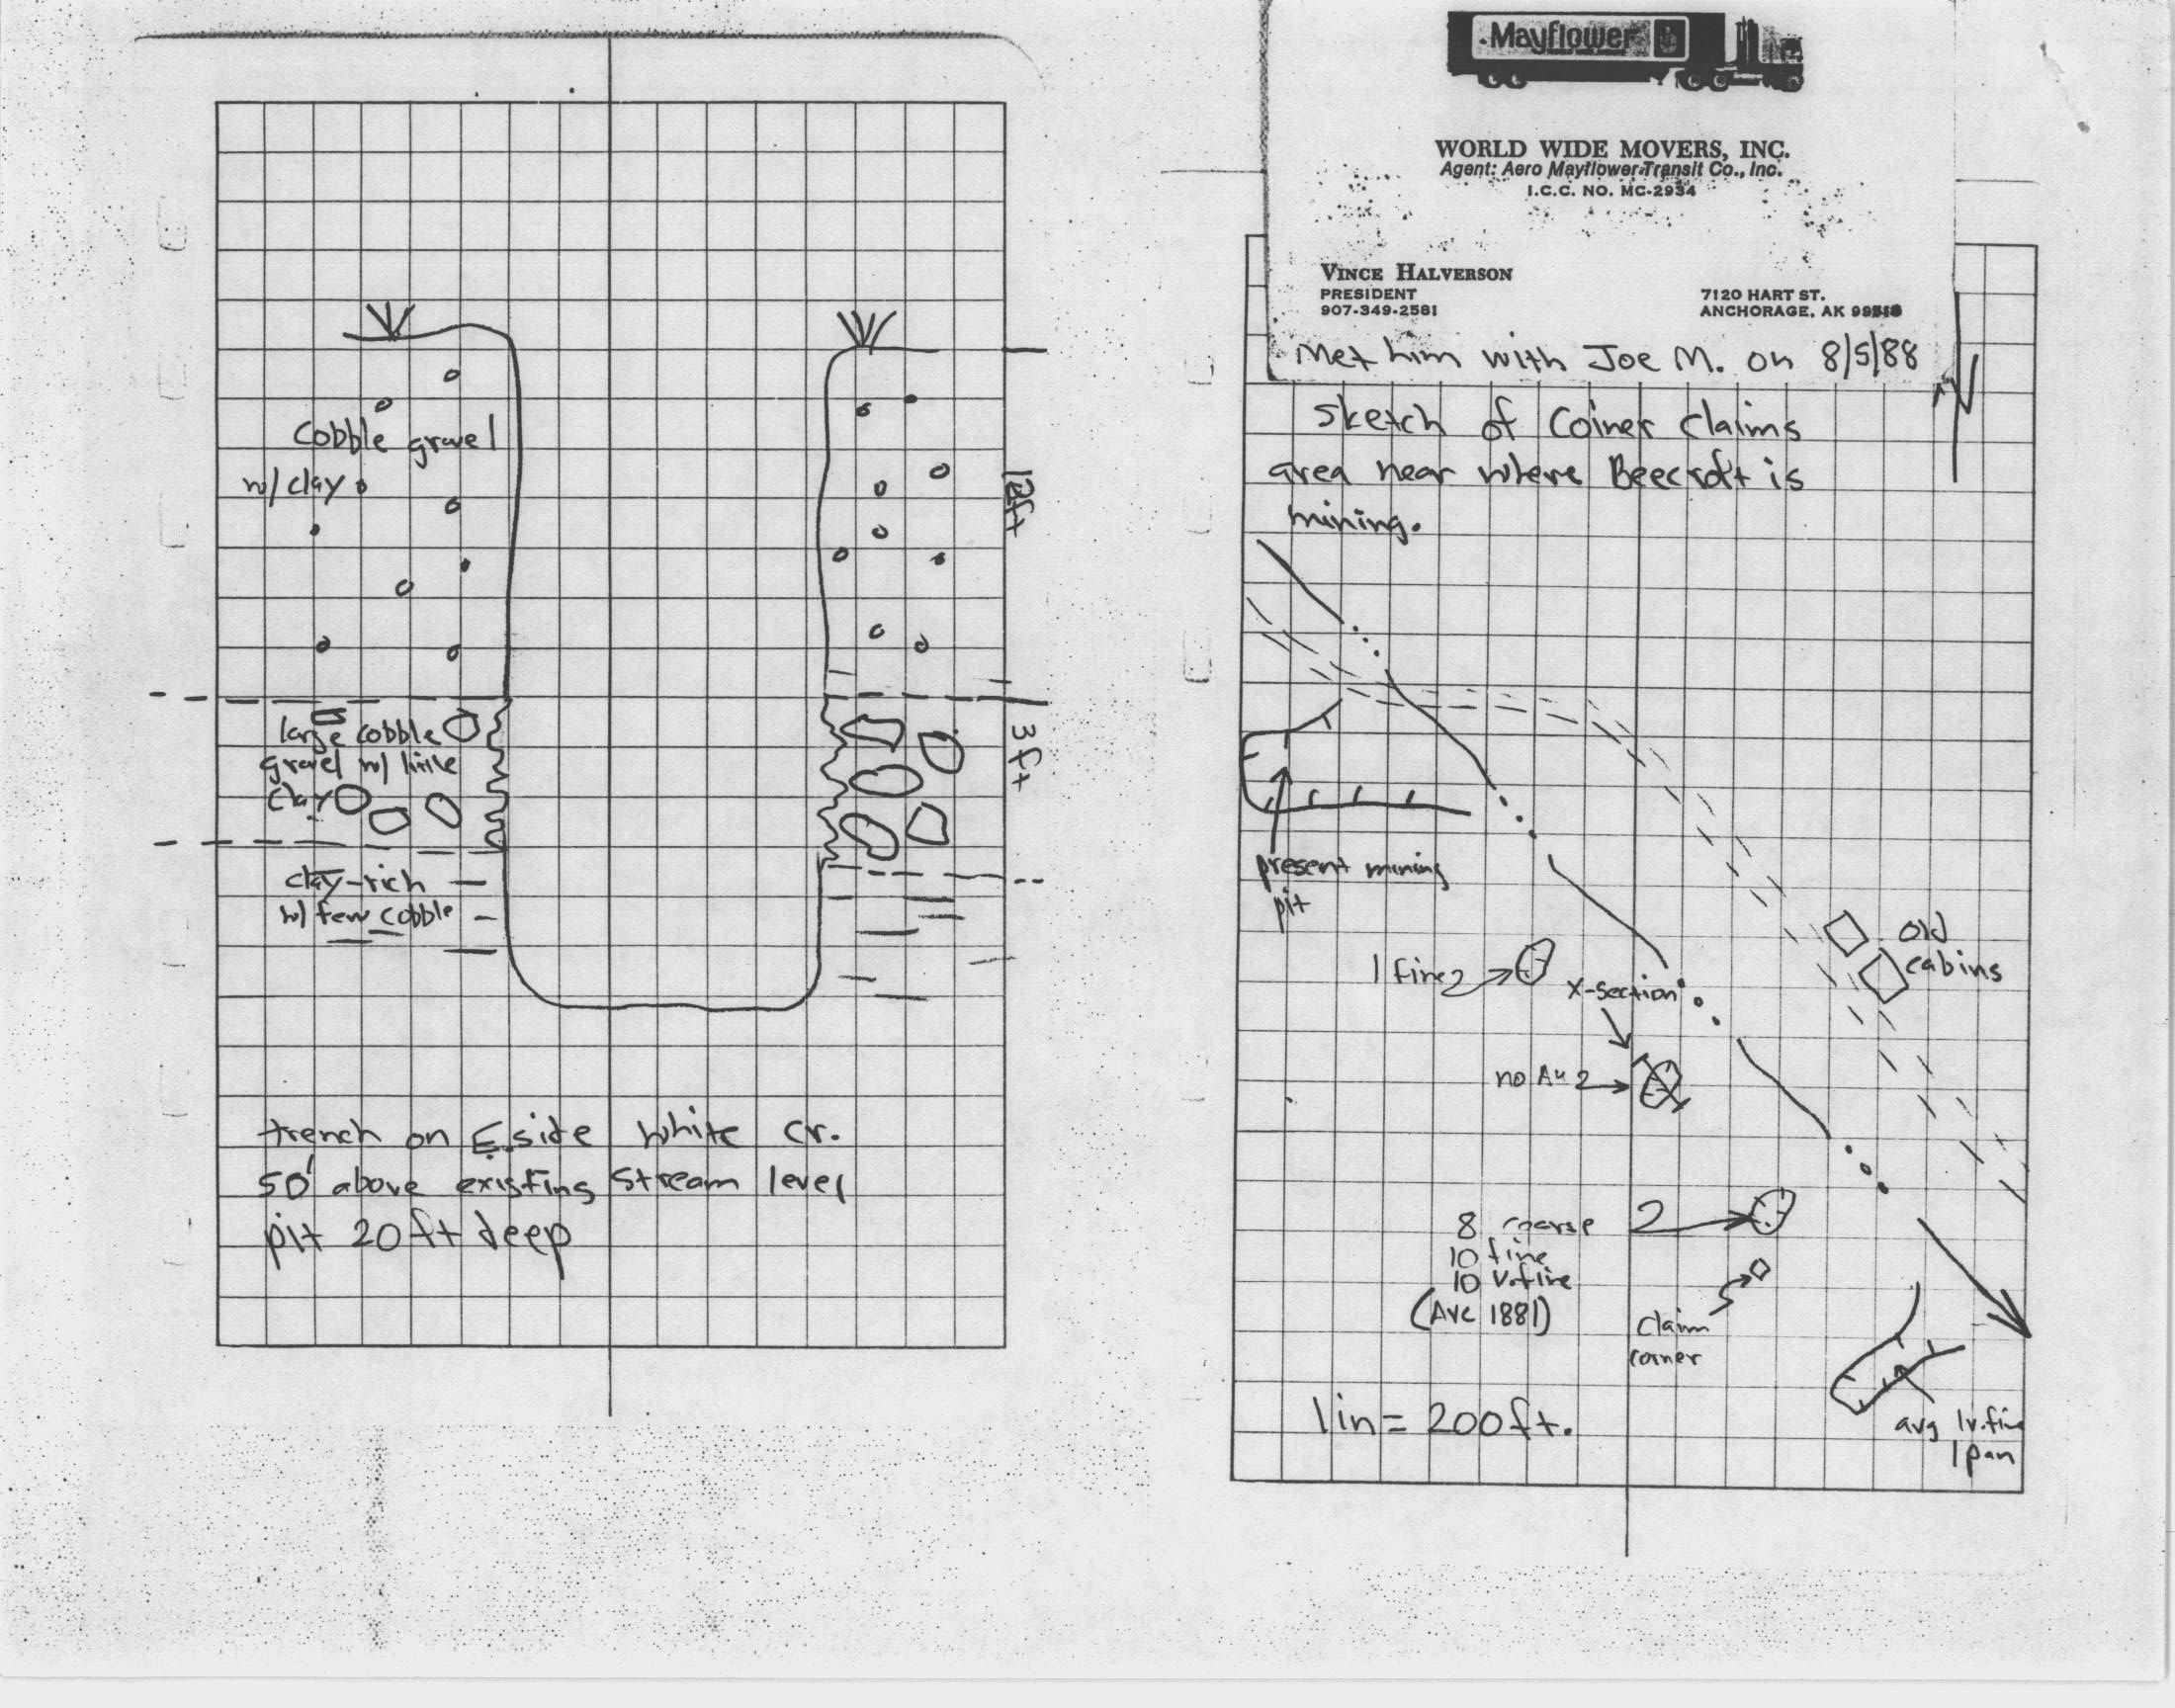 Cobble gravel
w/ clay
12ft
large cobble
gravel w/ little
clay
3 ft
clay-rich
w/ few cobble
trench on E. side White Cr.
50' above existing stream level
pit 20 ft deep
Mayflower
WORLD WIDE MOVERS, INC.
Agent: Aero Mayflower Transit Co., Inc.
I.C.C. NO. MC-2934
VINCE HALVERSON
PRESIDENT
907-349-2581
7120 HART ST.
ANCHORAGE, AK 99518
Met him with Joe M. on 8/5/88
N
Sketch of Coiner Claims
area near where Beecroft is
mining.
present mining
pit
old
cabins
1 fine
X-section
no Au
8 coarse
10 fine
10 v.fine
(Ave 1881)
Claim
corner
avg 1v.fine
1pan
1in = 200ft.